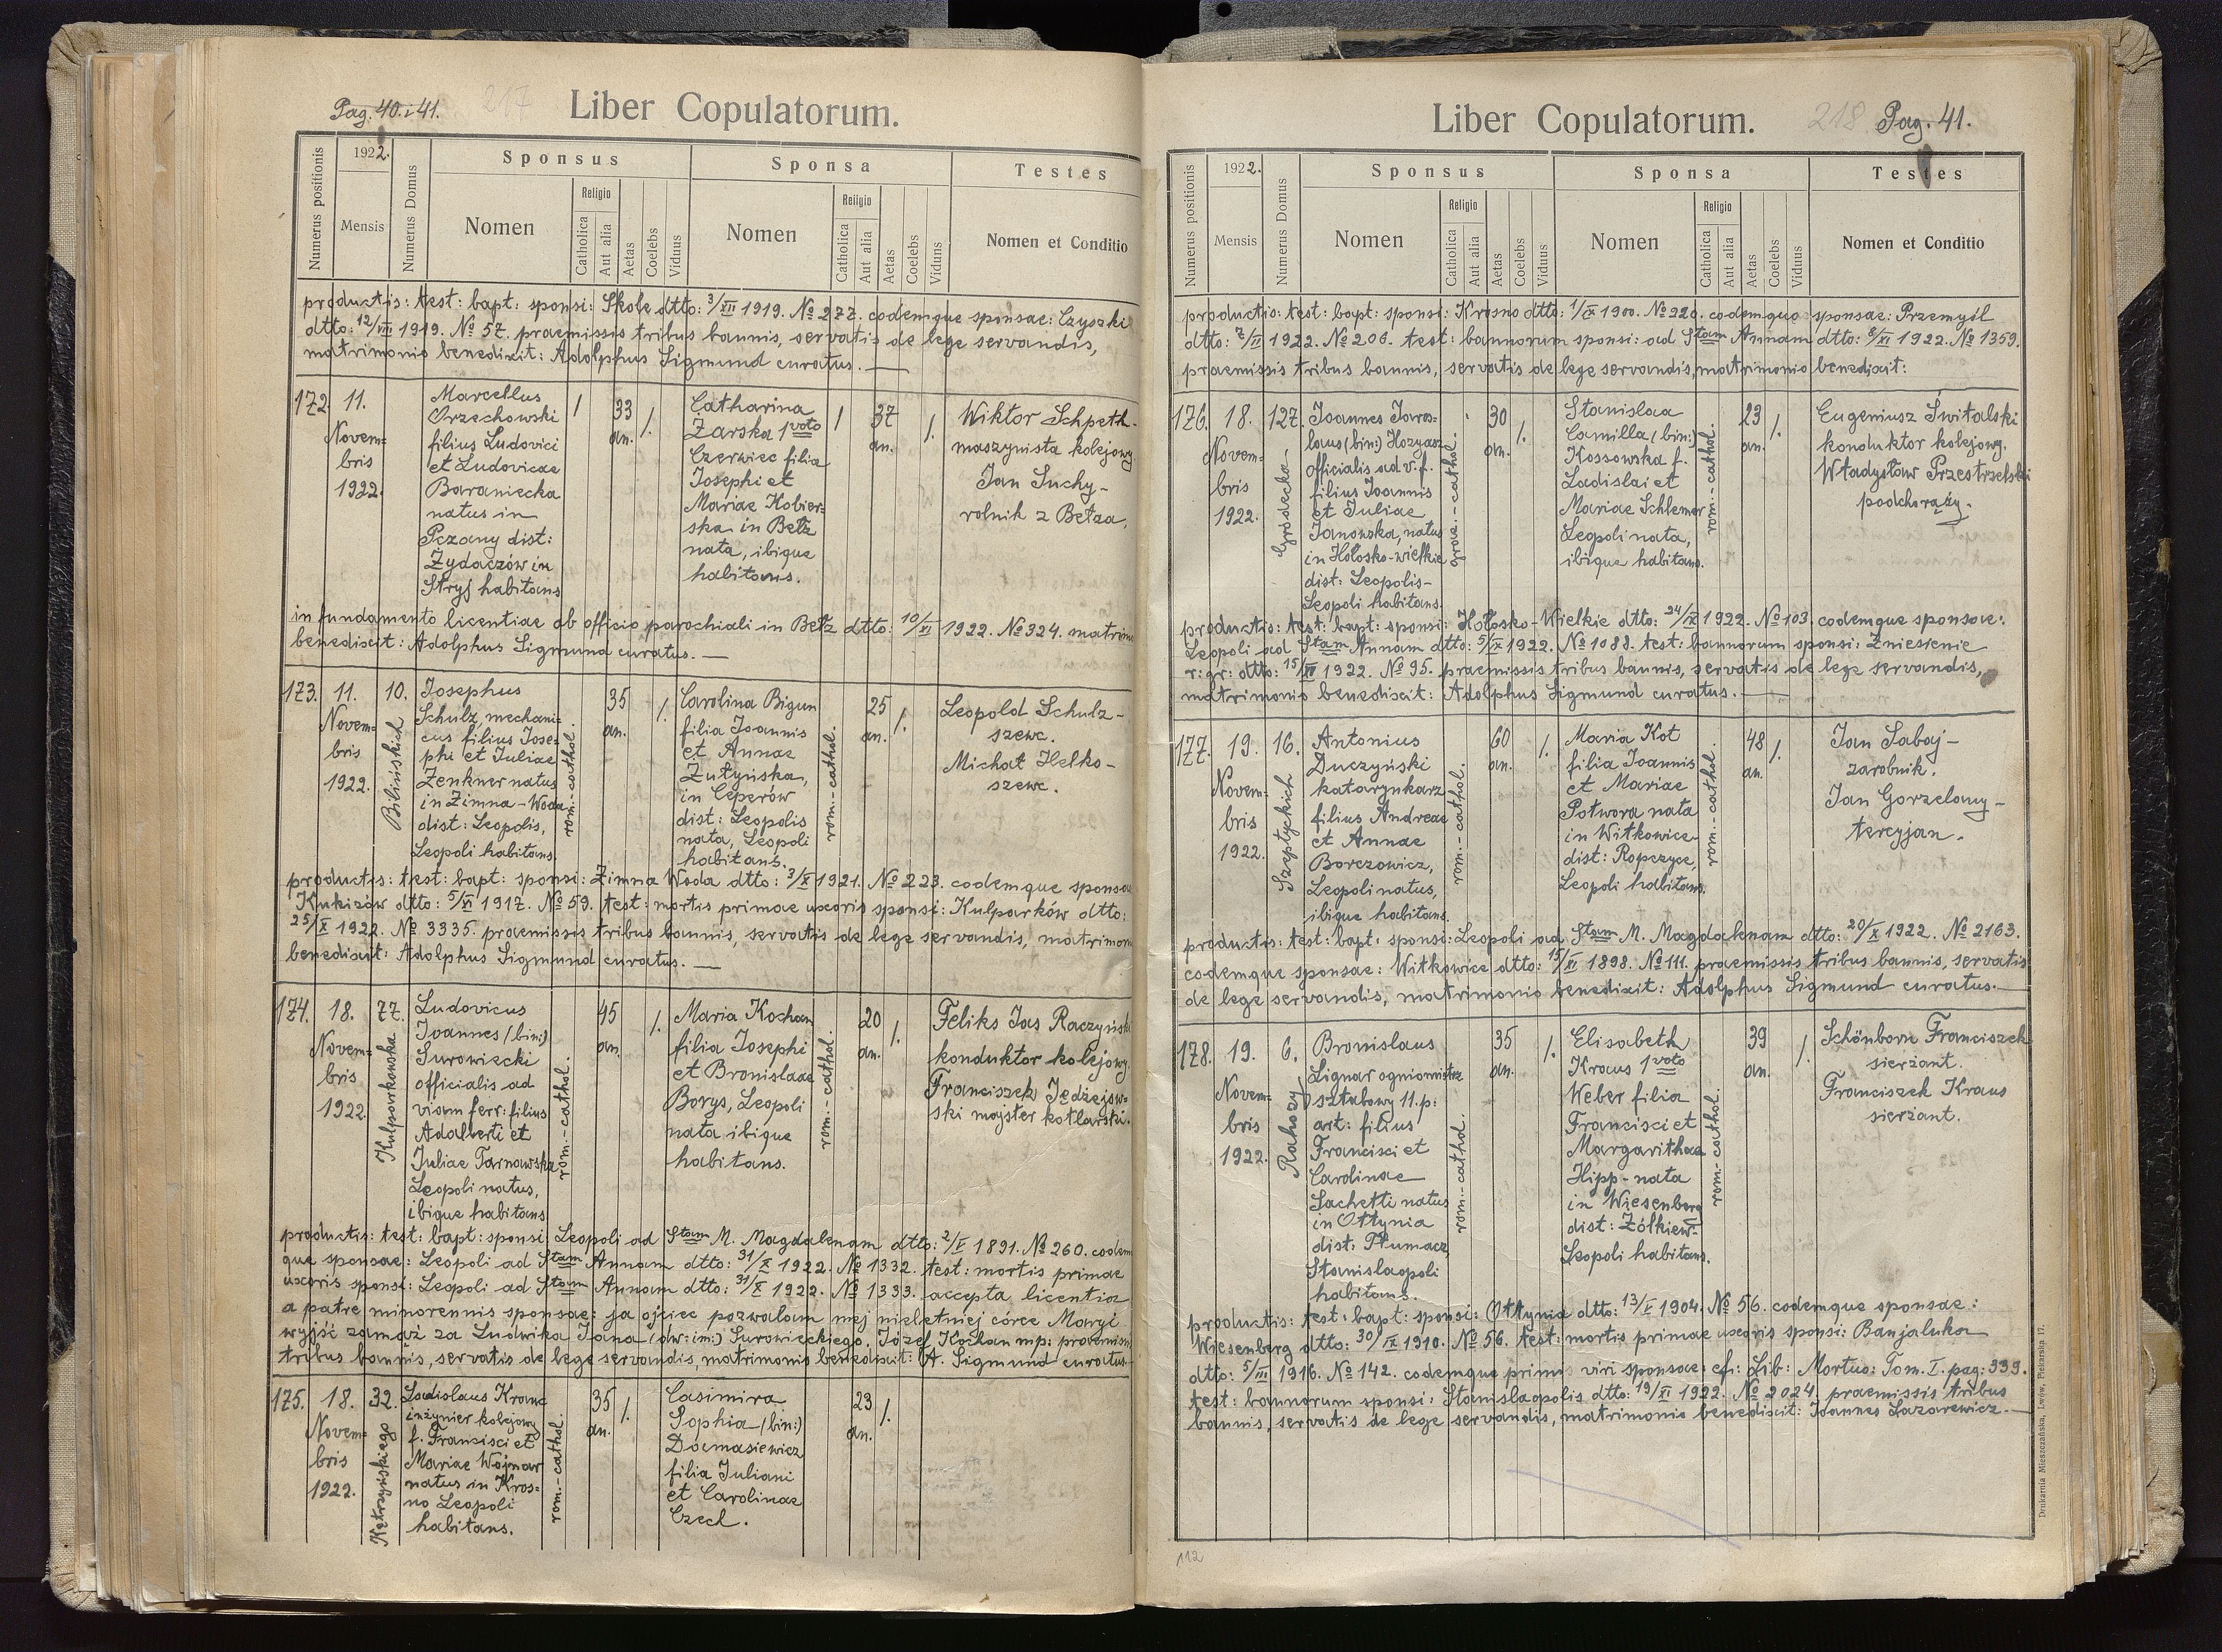 Pag. 40. i 41.
217
Liber Copulatorum.
Numerus positionis
1922.
Mensis
Numerus Domus
Sponsus
Nomen
Religio
Catholica
Aut alia
Aetas
Coelebs
Viduus
Sponsa
Nomen
Religio
Catholica
Aut alia
Aetas
Coelebs
Viduus
Testes
Nomen et Conditio
productis: test: bapt: sponsi: Skole dtto: 3/XII 1919. № 277. eodemque sponsae: Czyszki
dtto: 12/VIII 1919. № 57. praemissis tribus bannis, servatis de lege servandis,
matrimonio benedixit: Adolphus Sigmund curatus. —
172.
11.
Novem=
bris
1922.
Marcellus
Orzechowski
filius Ludovici
et Ludovicae
Baraniecka
natus in
Pczany dist:
Żydaczów in
Stryj habitans
1
33
an.
1.
Catharina
Żarska 1 voto
Czerwiec filia
Josephi et
Mariae Hobier=
ska in Bełz
nata, ibique
habitans.
1
37
an.
1.
Wiktor Schpeth -
maszynista kolejowy
Jan Suchy -
rolnik z Bełza.
in fundamento licentiae ab officio parochiali in Bełz dtto: 10/XI 1922. № 324. matrimo
benedixit: Adolphus Sigmund curatus. —
173.
11.
Novem=
bris
1922.
10.
Bilińskich
Josephus
Schulz, mechani=
cus filius Jose=
phi et Juliae
Zenkner natus
in Zimna-Woda
dist: Leopolis,
Leopoli habitans.
rom.-cathol.
35
an.
1.
Carolina Bigun
filia Joannis
et Annae
Żutyńska,
in Ceperów
dist: Leopolis
nata, Leopoli
habitans.
rom.-cathol.
25
an.
1.
Leopold Schulz -
szewc.
Michał Helko -
szewc.
productis: test: bapt: sponsi: Zimna Woda dtto: 3/X 1921. № 223. eodemque sponsae
Kukizów dtto: 5/XI 1917. № 59. test: mortis primae uxoris sponsi: Kulparków dtto:
25/X 1922. № 3335. praemissis tribus bannis, servatis de lege servandis, matrimon
benedixit: Adolphus Sigmund curatus. —
174.
18.
Novem=
bris
1922.
77.
Kulparkowska
Ludovicus
Joannes (bin:)
Surowiecki
officialis ad
viam ferr: filius
Adalberti et
Juliae Tarnawska
Leopoli natus,
ibique habitans
rom.-cathol.
45
an.
1.
Maria Kochan
filia Josephi
et Bronislaae
Borys, Leopoli
nata ibique
habitans.
rom.-cathol.
20
an.
1.
Feliks Jas Raczyński
konduktor kolejowy.
Franciszek Jędzejow=
ski majster kotlarski.
productis: test: bapt: sponsi Leopoli ad Stam M. Magdalenam dtto: 2/V 1891. № 260. eodem
que sponsae: Leopoli ad Stam Annam dtto: 31/X 1922. № 1332. test: mortis primae
uxoris sponsi: Leopoli ad Stam Annam dtto: 31/X 1922. № 1333. accepta licentia
a patre minorennis sponsae: ja ojciec pozwalam mej nieletniej córce Maryi
wyjść zamąż za Ludwika Jana (dw: im:) Surowieckiego. Józef Kochan mp: praemissis
tribus bannis, servatis de lege servandis, matrimonio benedixit: A. Sigmund curatus.—
175.
18.
Novem=
bris
1922.
32.
Kętrzyńskiego
Ladislaus Kranc
inżynier kolejowy
f. Francisci et
Mariae Wojnar
natus in Kros=
no Leopoli
habitans.
rom.-cathol.
35
an.
1.
Casimira
Sophia (bin:)
Domasiewicz
filia Juliani
et Carolinae
Czech.
23
an.
1.
Liber Copulatorum.
218
Pag. 41.
Numerus positionis
1922.
Mensis
Numerus Domus
Sponsus
Nomen
Religio
Catholica
Aut alia
Aetas
Coelebs
Viduus
Sponsa
Nomen
Religio
Catholica
Aut alia
Aetas
Coelebs
Viduus
Testes
Nomen et Conditio
productis: test: bapt: sponsi: Krosno dtto: 1/IX 1900. № 220. eodemque sponsae: Przemyśl
dtto: 7/II 1922. № 206. test: bannorum sponsi: ad Stam Annam dtto: 8/XI 1922. № 1359.
praemissis tribus bannis, servatis de lege servandis, matrimonio benedixit:
176.
18.
Novem=
bris
1922.
127.
Grodecka
Joannes Jaros=
laus (bin:) Hozyasz
officialis ad v. f.
filius Joannis
et Juliae
Janowska, natus
in Hołosko-wielkie
dist: Leopolis-
Leopoli habitans.
graec.-cathol.
30
an.
1.
Stanislaa
Camilla (bin:)
Kossowska f.
Ladislai et
Mariae Schlemer
Leopoli nata,
ibique habitans.
rom.-cathol.
23
an.
1.
Eugeniusz Świtalski
konduktor kolejowy.
Władysław Przestrzelski
podchorąży.
productis: test: bapt: sponsi: Hołosko-Wielkie dtto: 24/IX 1922. № 103. eodemque sponsae:
Leopoli ad Stam Annam dtto: 5/IX 1922. № 1088. test: bannorum sponsi: Zniesienie
r: gr: dtto: 15/XI 1922. № 95. praemissis tribus bannis, servatis de lege servandis,
matrimonio benedixit: Adolphus Sigmund curatus. —
177.
19.
Novem=
bris
1922.
16.
Szeptyckich
Antonius
Duczyński
katarynkarz
filius Andreae
et Annae
Borczowicz,
Leopoli natus,
ibique habitans.
rom.-cathol.
60
an.
1.
Maria Kot
filia Joannis
et Mariae
Potwora nata
in Witkowice
dist: Ropczyce,
Leopoli habitans.
rom.-cathol.
48
an.
1.
Jan Sabaj -
zarobnik.
Jan Gorzelany -
tercyjan.
productis: test: bapt: sponsi: Leopoli ad Stam M. Magdalenam dtto: 20/X 1922. № 2163.
eodemque sponsae: Witkowice dtto: 15/XI 1898. № 111. praemissis tribus bannis, servatis
de lege servandis, matrimonio benedixit: Adolphus Sigmund curatus.—
178.
19.
Novem=
bris
1922.
6.
Rahozy
Bronislaus
Lignar ogniomistrz
sztabowy 11. p:
art: filius
Francisci et
Carolinae
Sachetti natus
in Ottynia
dist: Tłumacz
Stanislaopoli
habitans.
rom.-cathol.
35
an.
1.
Elisabeth
Kraus 1 voto
Weber filia
Francisci et
Margarithae
Hipp - nata
in Wiesenberg
dist: Żółkiew-
Leopoli habitans.
rom.-cathol.
39
an.
1.
Schönborn Franciszek
sierżant.
Franciszek Kraus
sierżant.
productis: test: bapt: sponsi: Ottynia dtto: 13/V 1904. № 56. eodemque sponsae:
Wiesenberg dtto: 30/IX 1910. № 56. test: mortis primae uxoris sponsi: Banjaluka
dtto: 5/III 1916. № 142. eodemque primi viri sponsae: cf: Lib: Mortuo: Tom. I. pag: 339.
test: bannorum sponsi: Stanislaopolis dtto: 19/XI 1922. № 2024. praemissis tribus
bannis, servatis de lege servandis, matrimonio benedixit: Joannes Lazarewicz.—
112
Drukarnia Mieszczańska, Lwów, Piekarska 17.